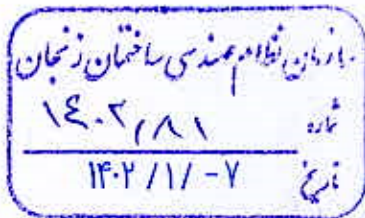 سازمان نظام مهندسی ساختمان زنجان
شماره ۱۴۰۲,۸۱
تاریخ ۱۴۰۲/۱/-۷